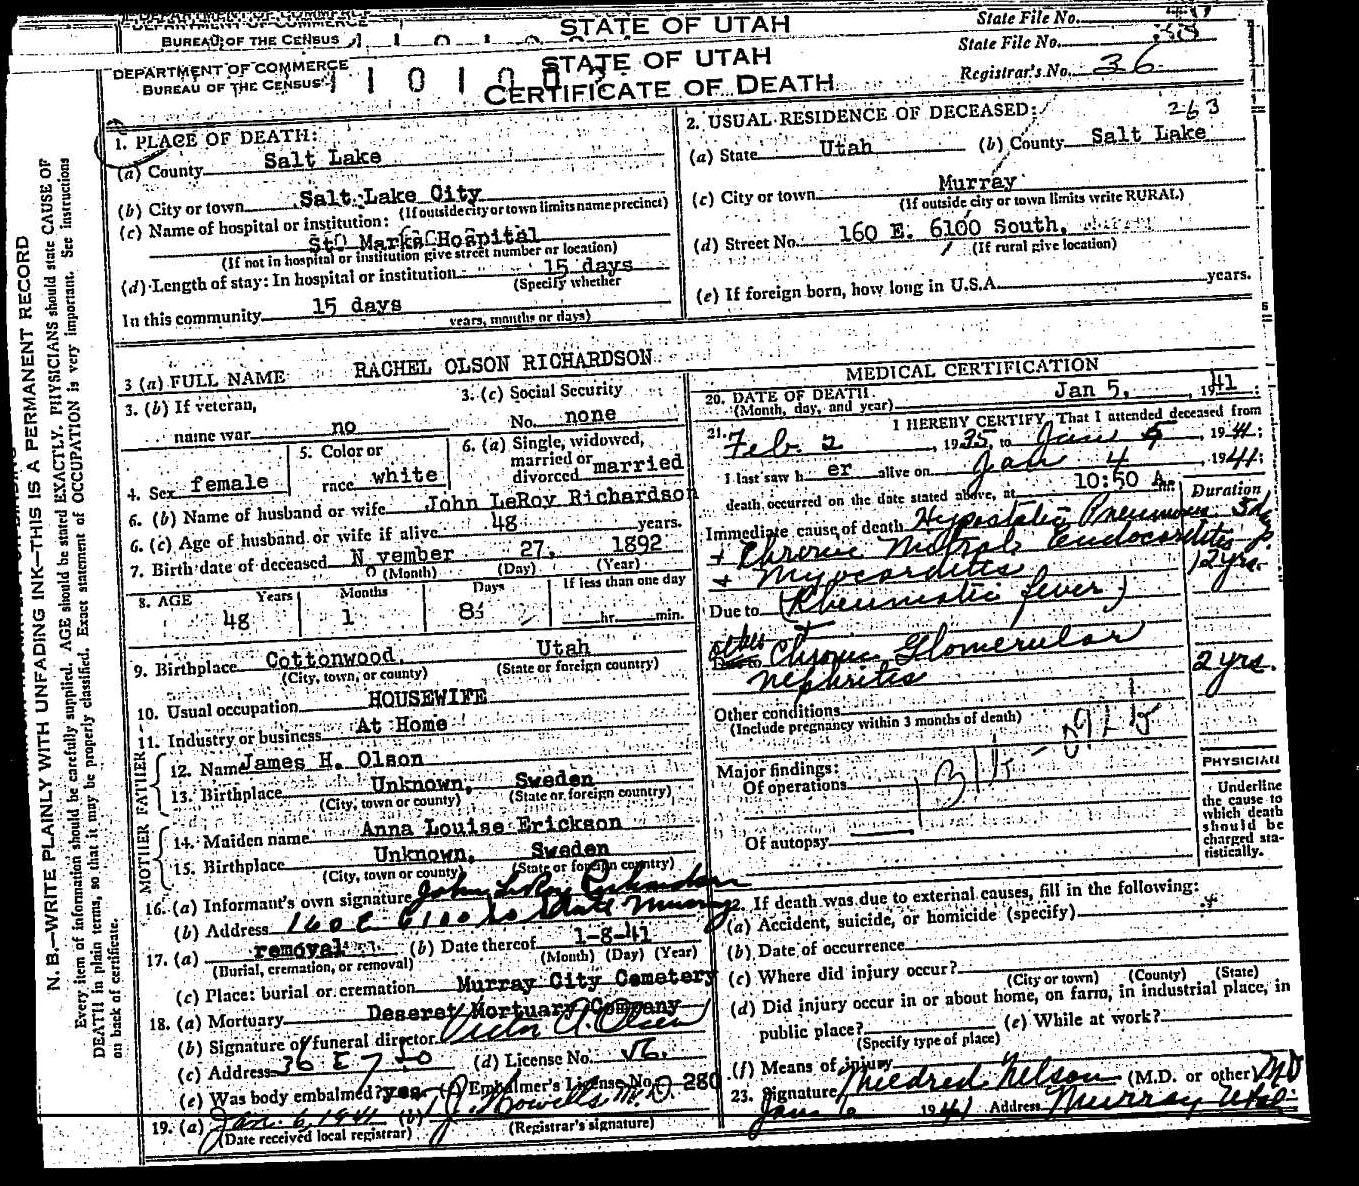 DEPARTMENT OF COMMERCE
BUREAU OF THE CENSUS
STATE OF UTAH
State File No.
State File No.
DEPARTMENT OF COMMERCE
BUREAU OF THE CENSUS
STATE OF UTAH
CERTIFICATE OF DEATH
Registrar's No. 36
1. PLACE OF DEATH:
(a) County Salt Lake
(b) City or town Salt Lake City
(If outside city or town limits name precinct)
(c) Name of hospital or institution:
St. Marks Hospital
(If not in hospital or institution give street number or location)
(d) Length of stay: In hospital or institution 15 days
(Specify whether
In this community 15 days
years, months or days)
2. USUAL RESIDENCE OF DECEASED: 263
(a) State Utah (b) County Salt Lake
(c) City or town Murray
(If outside city or town limits write RURAL)
(d) Street No. 160 E. 6100 South.
(If rural give location)
(e) If foreign born, how long in U.S.A. years.
3 (a) FULL NAME RACHEL OLSON RICHARDSON
3. (b) If veteran,
name war no
3. (c) Social Security
No. none
4. Sex female
5. Color or
race white
6. (a) Single, widowed,
married or
divorced married
6. (b) Name of husband or wife John LeRoy Richardson
6. (c) Age of husband or wife if alive 48 years.
7. Birth date of deceased November 27, 1892
(Month) (Day) (Year)
8. AGE Years Months Days If less than one day
48 1 8 hr. min.
9. Birthplace Cottonwood, Utah
(City, town, or county) (State or foreign country)
10. Usual occupation HOUSEWIFE
11. Industry or business At Home
FATHER
12. Name James H. Olson
13. Birthplace Unknown, Sweden
(City, town or county) (State or foreign country)
MOTHER
14. Maiden name Anna Louise Erickson
15. Birthplace Unknown, Sweden
(City, town or county) (State or foreign country)
16. (a) Informant's own signature John LeRoy Richardson
(b) Address 160 E 6100 So State Murray
17. (a) removal (b) Date thereof 1-8-41
(Burial, cremation, or removal) (Month) (Day) (Year)
(c) Place: burial or cremation Murray City Cemetery
18. (a) Mortuary Deseret Mortuary Company
(b) Signature of funeral director Victor A. Olsen
(c) Address 36 E 7 So (d) License No. 76.
(e) Was body embalmed? yes (f) Embalmer's License No. 280
19. (a) Jan. 6, 1941 (b) Howells M.D.
(Date received local registrar) (Registrar's signature)
MEDICAL CERTIFICATION
20. DATE OF DEATH Jan 5, 1941
(Month, day, and year)
21. I HEREBY CERTIFY, That I attended deceased from
Feb. 2, 1935 to Jan 5, 1941;
I last saw her alive on Jan 4, 1941;
death occurred on the date stated above, at 10:50 A.m.
Duration
Immediate cause of death Hypostatic Pneumonia 5 dys
+ Chronic Mitral Endocarditis
+ Myocarditis 12 yrs.
Due to (Rheumatic fever)
Chronic Glomerular
Nephritis 2 yrs.
Other conditions
(Include pregnancy within 3 months of death)
Major findings:
Of operations
Of autopsy
PHYSICIAN
Underline
the cause to
which death
should be
charged sta-
tistically.
22. If death was due to external causes, fill in the following:
(a) Accident, suicide, or homicide (specify)
(b) Date of occurrence
(c) Where did injury occur?
(City or town) (County) (State)
(d) Did injury occur in or about home, on farm, in industrial place, in
public place? (e) While at work?
(Specify type of place)
(f) Means of injury
23. Signature Mildred Nelson (M.D. or other) MD
Jan 6 1941 Address Murray Utah
N. B.—WRITE PLAINLY WITH UNFADING INK—THIS IS A PERMANENT RECORD
Every item of information should be carefully supplied. AGE should be stated EXACTLY. PHYSICIANS should state CAUSE OF
DEATH in plain terms, so that it may be properly classified. Exact statement of OCCUPATION is very important. See instructions
on back of certificate.